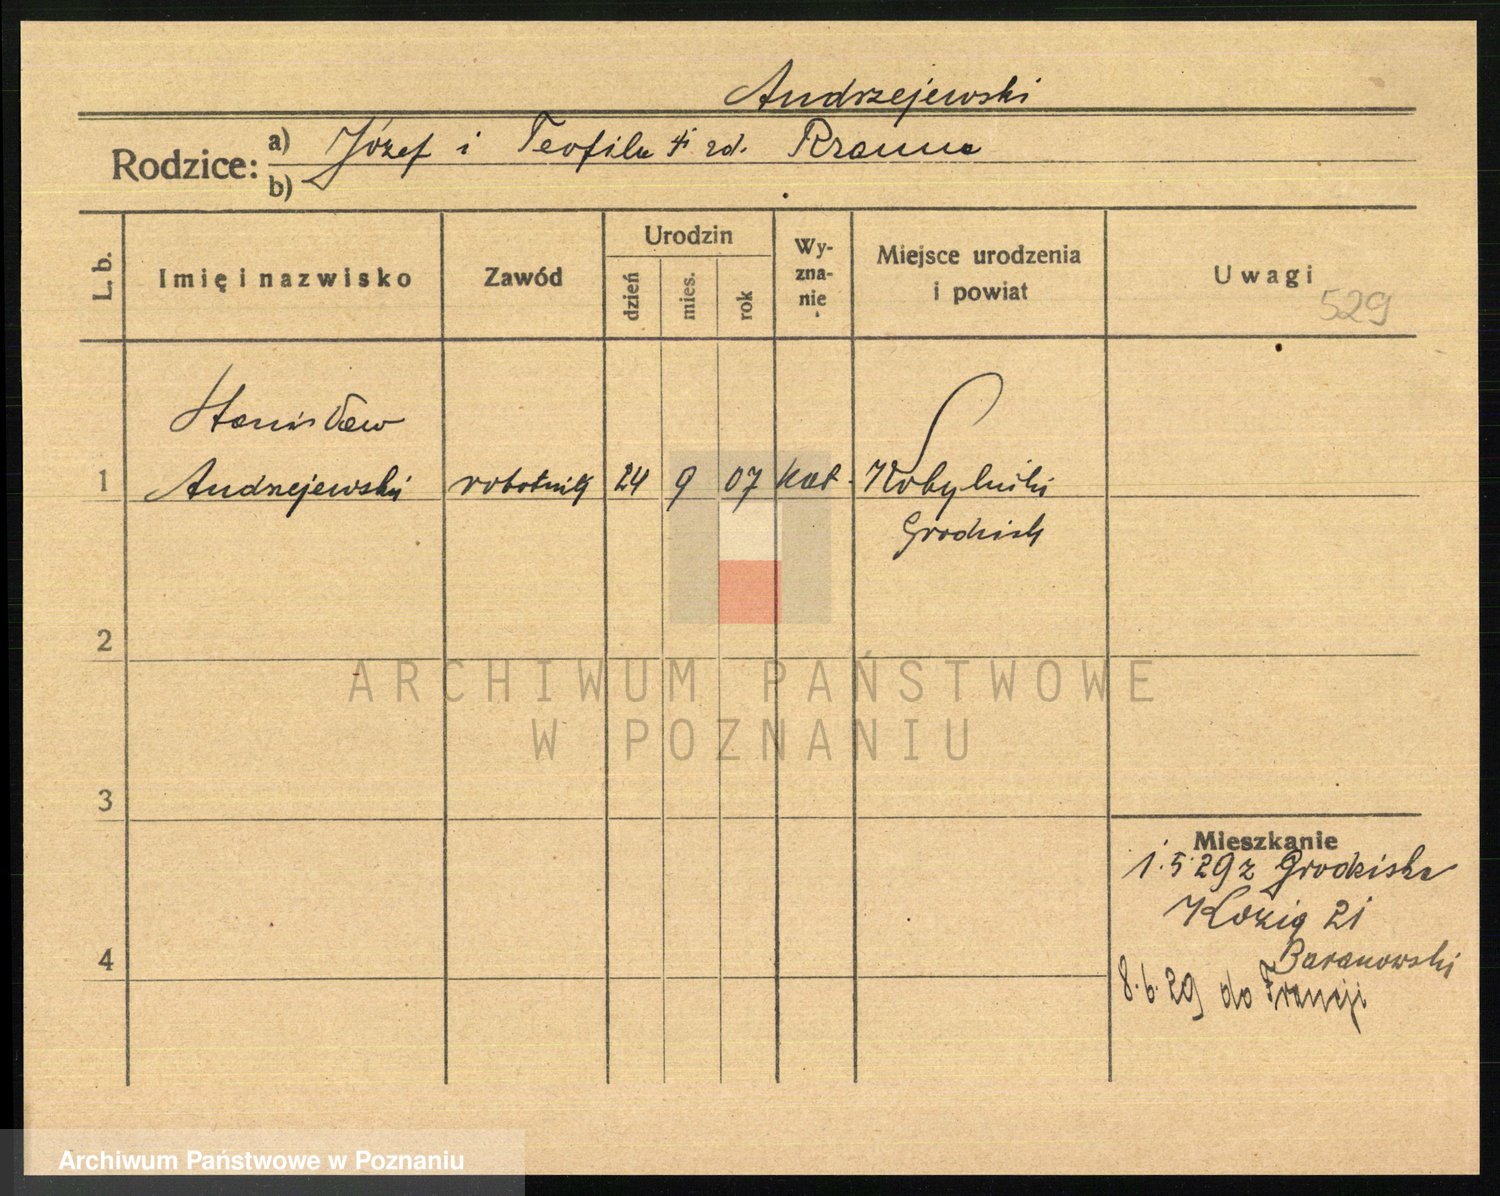 Andrzejewski
Rodzice: a) Józef i Teofila zd.
b)
L. b. Imię i nazwisko Zawód Urodzin dzień mies. rok Wyznanie Miejsce urodzenia i powiat Uwagi
529
Stanisław
1 Andrzejewski robotnik 24 9 07 kat. Kobylniki
Grodzisk
2
ARCHIWUM PAŃSTWOWE
W POZNANIU
3
Mieszkanie
1.5.29 z Grodziska
21
Baranowski
4
8.6.29 do Francji
Archiwum Państwowe w Poznaniu